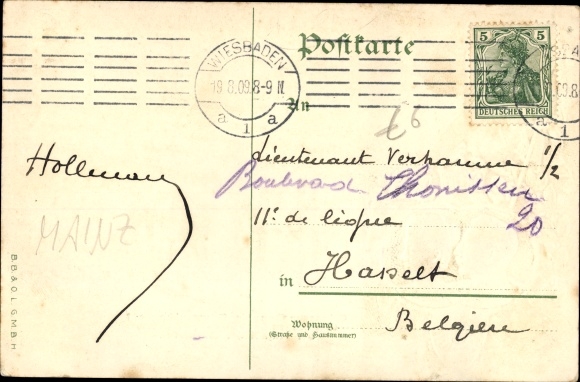 Postkarte
5 5
DEUTSCHES REICH
WIESBADEN
19.8.09.8-9 N.
a 1 a
An
€6
Lieutenant Verhamme 1/2
Boulevard Thonissen
20
11e de ligne
in Hasselt
Belgien
Wohnung
(Straße und Hausnummer)
Holleman
MAINZ
BB & OL GMBH